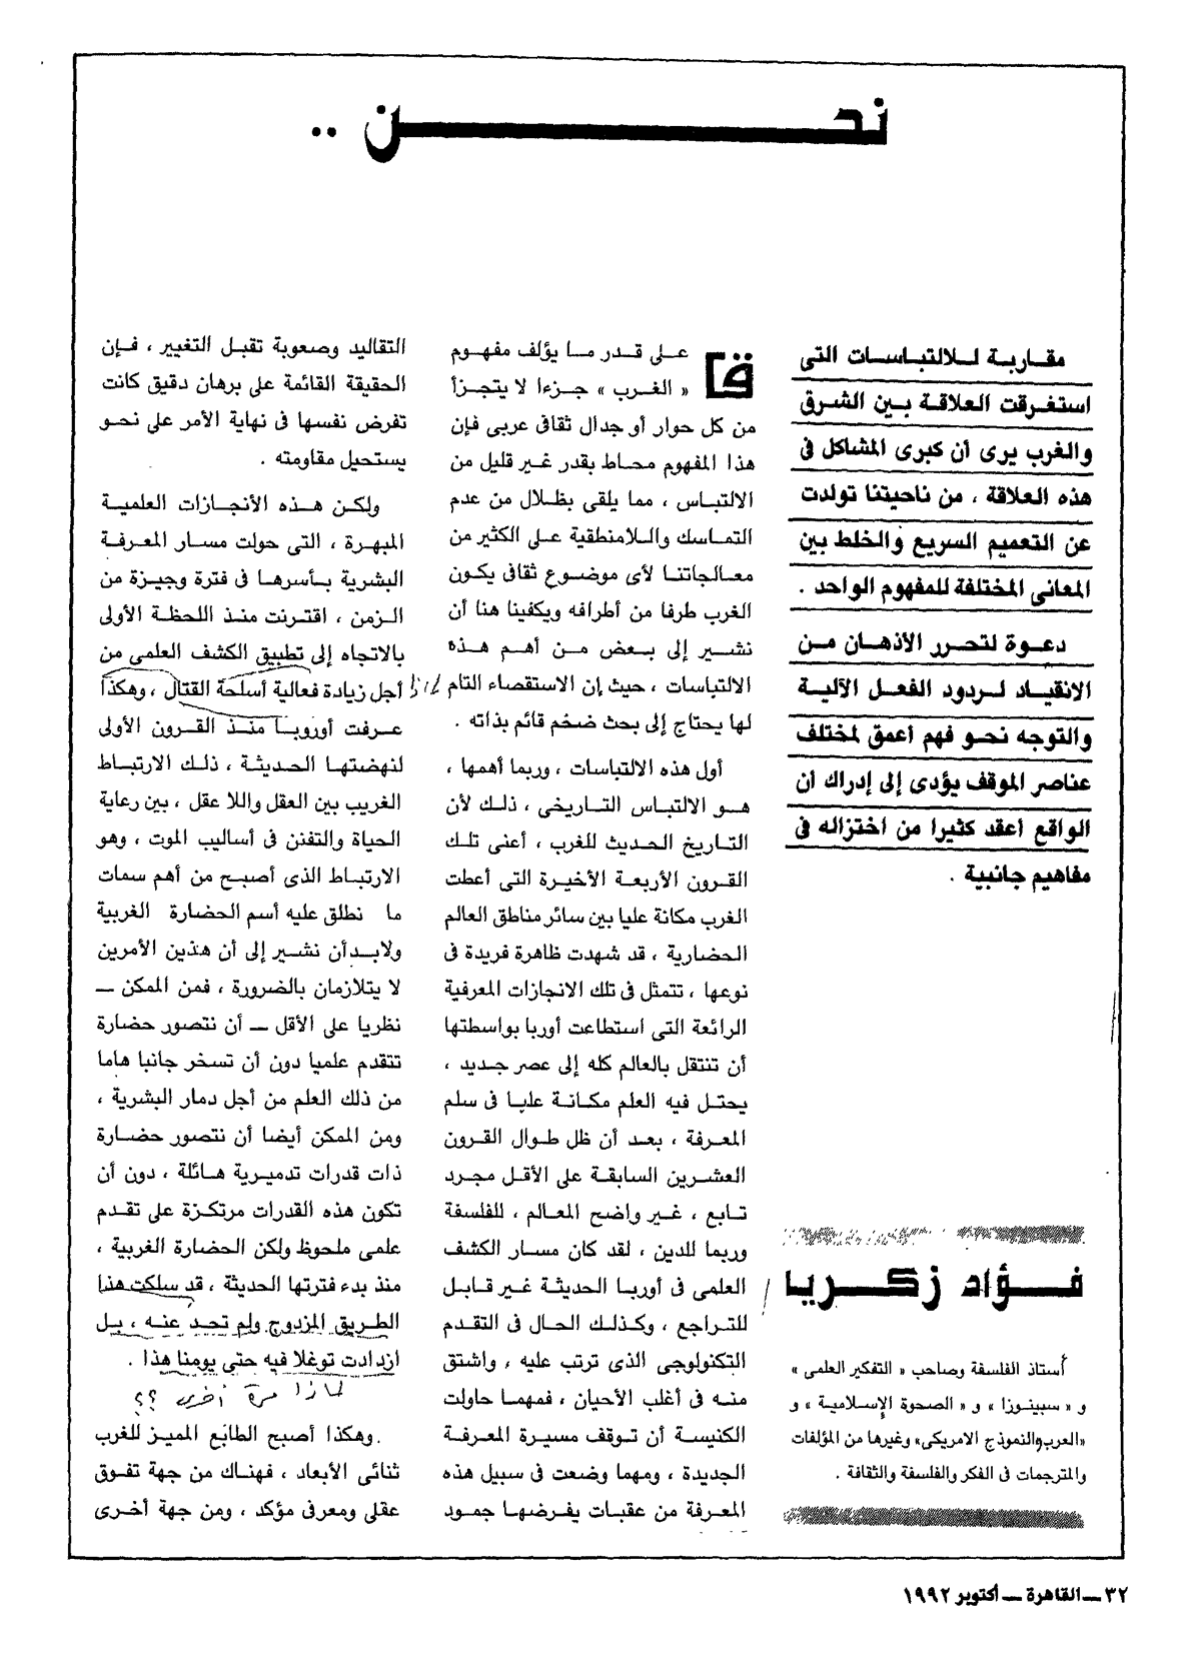 نحن ..
مقاربة للالتباسات التى
استغرقت العلاقة بين الشرق
والغرب يرى أن كبرى المشاكل فى
هذه العلاقة ، من ناحيتنا تولدت
عن التعميم السريع والخلط بين
المعانى المختلفة للمفهوم الواحد .
دعوة لتحرر الأذهان من
الانقياد لردود الفعل الآلية
والتوجه نحو فهم أعمق لمختلف
عناصر الموقف يؤدى إلى إدراك أن
الواقع أعقد كثيرا من اختزاله فى
مفاهيم جانبية .
فؤاد زكريا
أستاذ الفلسفة وصاحب « التفكير العلمى »
و « سبينوزا » و « الصحوة الإسلامية » و
«العرب والنموذج الامريكى» وغيرها من المؤلفات
والمترجمات فى الفكر والفلسفة والثقافة .
على قدر ما يؤلف مفهوم
« الغرب » جزءا لا يتجزأ
من كل حوار أو جدال ثقافى عربى فإن
هذا المفهوم محاط بقدر غير قليل من
الالتباس ، مما يلقى بظلال من عدم
التماسك واللامنطقية على الكثير من
معالجاتنا لأى موضوع ثقافى يكون
الغرب طرفا من أطرافه ويكفينا هنا أن
نشير إلى بعض من أهم هذه
الالتباسات ، حيث إن الاستقصاء التام
لها يحتاج إلى بحث ضخم قائم بذاته .
أول هذه الالتباسات ، وربما أهمها ،
هو الالتباس التاريخى ، ذلك لأن
التاريخ الحديث للغرب ، أعنى تلك
القرون الأربعة الأخيرة التى أعطت
الغرب مكانة عليا بين سائر مناطق العالم
الحضارية ، قد شهدت ظاهرة فريدة فى
نوعها ، تتمثل فى تلك الانجازات المعرفية
الرائعة التى استطاعت أوربا بواسطتها
أن تنتقل بالعالم كله إلى عصر جديد ،
يحتل فيه العلم مكانة عليا فى سلم
المعرفة ، بعد أن ظل طوال القرون
العشرين السابقة على الأقل مجرد
تابع ، غير واضح المعالم ، للفلسفة
وربما للدين ، لقد كان مسار الكشف
العلمى فى أوربا الحديثة غير قابل
للتراجع ، وكذلك الحال فى التقدم
التكنولوجى الذى ترتب عليه ، واشتق
منه فى أغلب الأحيان ، فمهما حاولت
الكنيسة أن توقف مسيرة المعرفة
الجديدة ، ومهما وضعت فى سبيل هذه
المعرفة من عقبات يفرضها جمود
التقاليد وصعوبة تقبل التغيير ، فإن
الحقيقة القائمة على برهان دقيق كانت
تفرض نفسها فى نهاية الأمر على نحو
يستحيل مقاومته .
ولكن هذه الأنجازات العلمية
المبهرة ، التى حولت مسار المعرفة
البشرية بأسرها فى فترة وجيزة من
الزمن ، اقترنت منذ اللحظة الأولى
بالاتجاه إلى تطبيق الكشف العلمى من
أجل زيادة فعالية أسلحة القتال ، وهكذا
عرفت أوروبا منذ القرون الأولى
لنهضتها الحديثة ، ذلك الارتباط
الغريب بين العقل واللا عقل ، بين رعاية
الحياة والتفنن فى أساليب الموت ، وهو
الارتباط الذى أصبح من أهم سمات
ما نطلق عليه أسم الحضارة الغربية
ولابد أن نشير إلى أن هذين الأمرين
لا يتلازمان بالضرورة ، فمن الممكن ــ
نظريا على الأقل ــ أن نتصور حضارة
تتقدم علميا دون أن تسخر جانبا هاما
من ذلك العلم من أجل دمار البشرية ،
ومن الممكن أيضا أن نتصور حضارة
ذات قدرات تدميرية هائلة ، دون أن
تكون هذه القدرات مرتكزة على تقدم
علمى ملحوظ ولكن الحضارة الغربية ،
منذ بدء فترتها الحديثة ، قد سلكت هذا
الطريق المزدوج ولم تحد عنه ، بل
ازدادت توغلا فيه حتى يومنا هذا .
لماذا مرة أخرى ؟؟
وهكذا أصبح الطابع المميز للغرب
ثنائى الأبعاد ، فهناك من جهة تفوق
عقلى ومعرفى مؤكد ، ومن جهة أخرى
٣٢ ــ القاهرة ــ أكتوبر ١٩٩٢